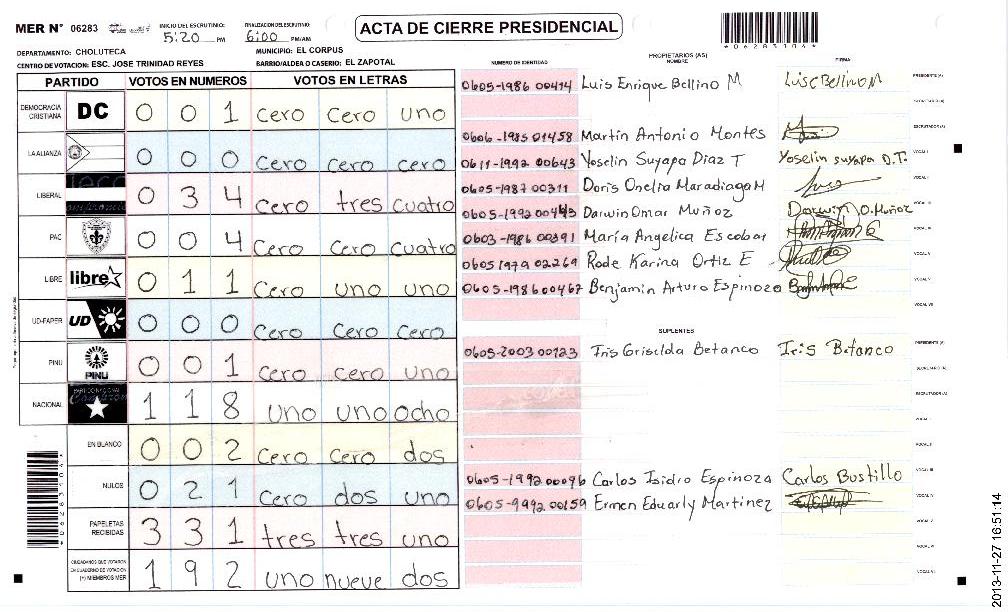 MER N° 06283
INICIO DEL ESCRUTINIO: 5:20 PM
FINALIZACION DEL ESCRUTINIO: 6:00 PM/AM
ACTA DE CIERRE PRESIDENCIAL
*06283104*
DEPARTAMENTO: CHOLUTECA
MUNICIPIO: EL CORPUS
CENTRO DE VOTACION: ESC. JOSE TRINIDAD REYES
BARRIO/ALDEA O CASERIO: EL ZAPOTAL
PARTIDO VOTOS EN NUMEROS VOTOS EN LETRAS
DEMOCRACIA CRISTIANA DC 0 0 1 cero cero uno
LA ALIANZA 0 0 0 cero cero cero
LIBERAL 0 3 4 cero tres cuatro
PAC 0 0 4 cero cero cuatro
LIBRE libre 0 1 1 cero uno uno
UD-FAPER UD 0 0 0 cero cero cero
PINU PINU 0 0 1 cero cero uno
NACIONAL 1 1 8 uno uno ocho
EN BLANCO 0 0 2 cero cero dos
NULOS 0 2 1 cero dos uno
PAPELETAS RECIBIDAS 3 3 1 tres tres uno
CIUDADANOS QUE VOTARON EN CUADERNO DE VOTACION (+) MIEMBROS MER 1 9 2 uno nueve dos
NUMERO DE IDENTIDAD PROPIETARIOS (AS) NOMBRE FIRMA
0605-1986 00414 Luis Enrique Bellino M Luis E Bellino M PRESIDENTE (A)
SECRETARIO (A)
0606-1985 01458 Martin Antonio Montes ESCRUTADOR (A)
0611-1992 00643 Yoselin Suyapa Diaz T Yoselin suyapa D.T. VOCAL I
0605-1987 00311 Doris Onelia Maradiaga M VOCAL II
0605-1992 00443 Darwin Omar Muñoz Darwin O. Muñoz VOCAL III
0603-1986 00391 María Angelica Escobar
0605 1979 02269 Rode Karina Ortiz E
0605-1986 00467 Benjamin Arturo Espinoza
SUPLENTES
0605-2003 00123 Iris Griselda Betanco Iris Betanco PRESIDENTE (A)
SECRETARIO (A)
ESCRUTADOR (A)
VOCAL I
VOCAL II
0605-1992 00096 Carlos Isidro Espinoza Carlos Bustillo VOCAL III
0605-9992 00159 Ermen Eduarly Martinez VOCAL IV
VOCAL V
VOCAL VI
*06283104*
2013-11-27 16:51:14